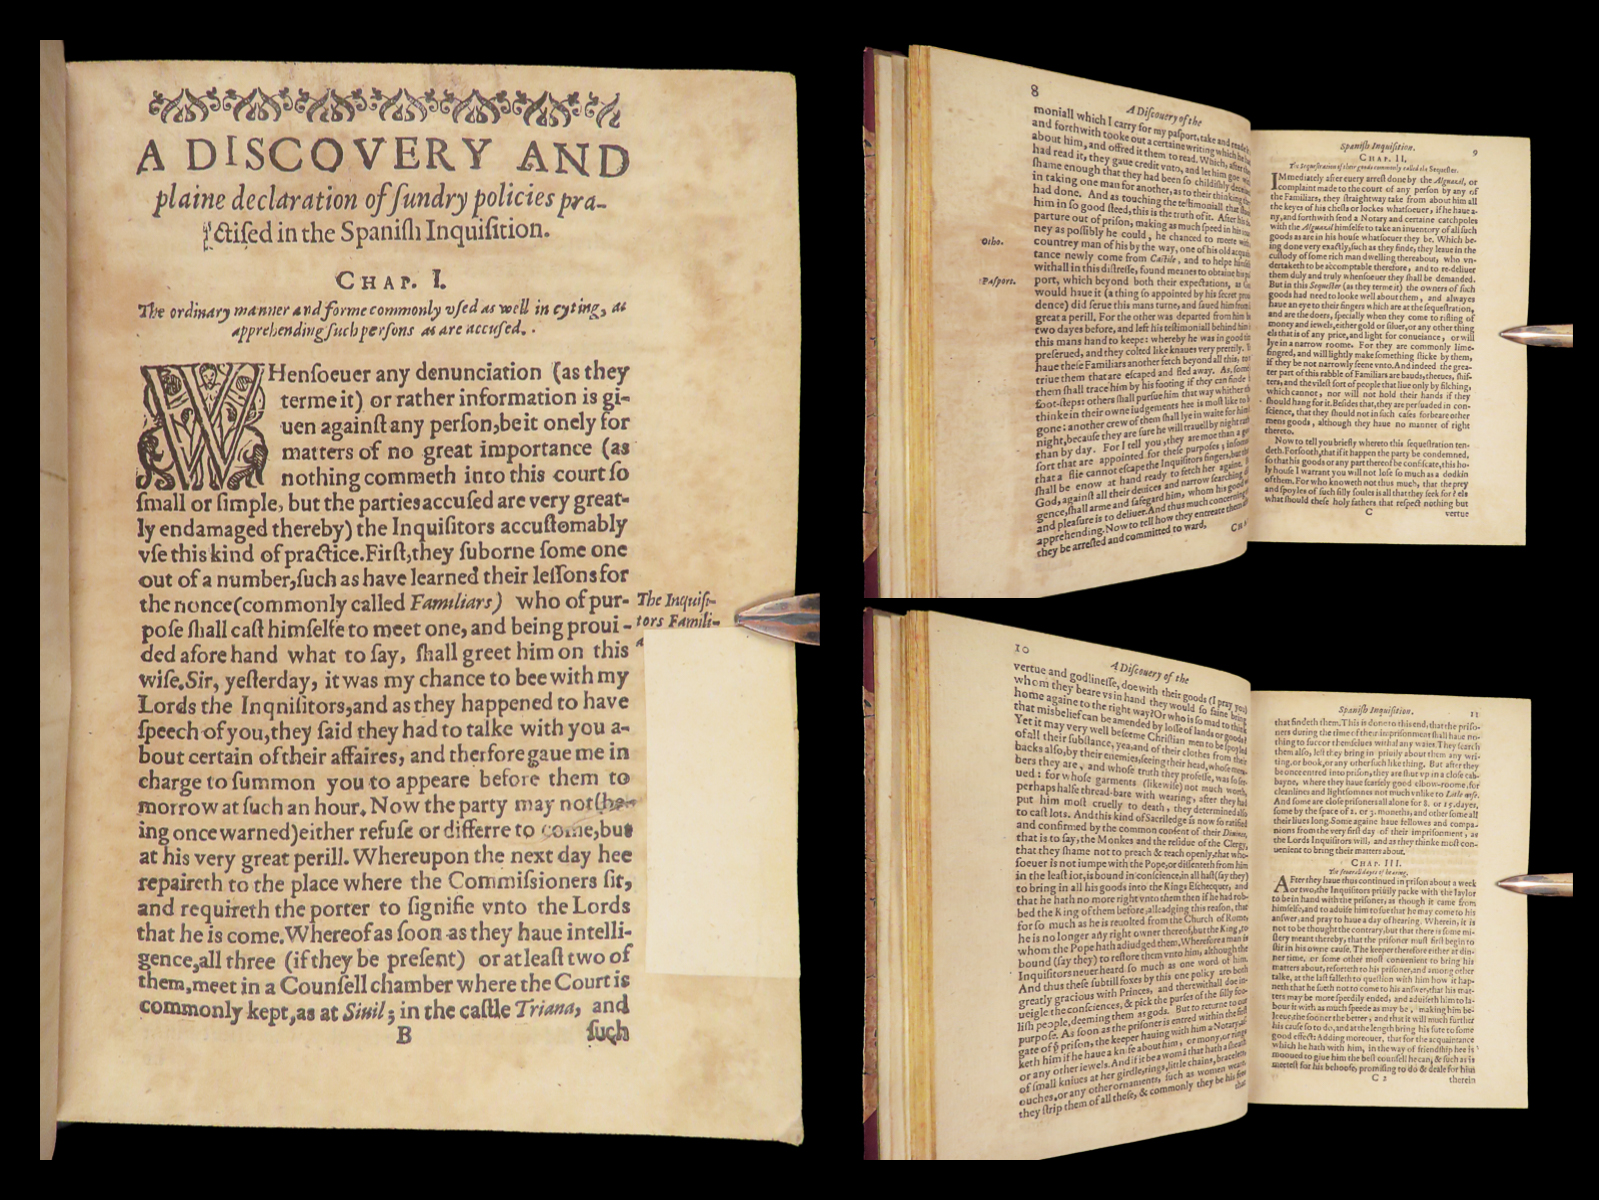 A DISCOVERY AND
plaine declaration of ſundry policies pra-
ctiſed in the Spaniſh Inquiſition.
CHAP. I.
The ordinary manner and forme commonly vſed as well in cyting, as
apprehending ſuch perſons as are accuſed.
WHenſoeuer any denunciation (as they
terme it) or rather information is gi-
uen againſt any perſon,be it onely for
matters of no great importance (as
nothing commeth into this court ſo
ſmall or ſimple, but the parties accuſed are very great-
ly endamaged thereby) the Inquiſitors accuſtomably
vſe this kind of practice.Firſt,they ſuborne ſome one
out of a number,ſuch as have learned their leſſons for
the nonce(commonly called Familiars) who of pur-
poſe ſhall caſt himſelfe to meet one, and being proui-
ded afore hand what to ſay, ſhall greet him on this
wiſe.Sir, yeſterday, it was my chance to bee with my
Lords the Inqniſitors,and as they happened to have
ſpeech of you,they ſaid they had to talke with you a-
bout certain of their affaires, and therfore gaue me in
charge to ſummon you to appeare before them to
morrow at ſuch an hour. Now the party may not(be-
ing once warned)either refuſe or differre to come,but
at his very great perill. Whereupon the next day hee
repaireth to the place where the Commiſſioners ſit,
and requireth the porter to ſignifie vnto the Lords
that he is come.Whereof as ſoon as they haue intelli-
gence,all three (if they be preſent) or at leaſt two of
them,meet in a Counſell chamber where the Court is
commonly kept,as at Siuil; in the caſtle Triana, and
B
ſuch
The Inquiſi-
tors Famili-
8
A Diſcouery of the
moniall which I carry for my paſport,take and
and forthwith tooke out a certaine writing which he
about him, and offred it them to read. Which, after
had read it, they gaue credit vnto, and let him goe
ſhame enough that they had been ſo childiſhly
in taking one man for another, as to their thinking
had done. And as touching the teſtimoniall that
him in ſo good ſteed, this is the truth of it. After his
parture out of priſon, making as much ſpeed in his
ney as poſſibly he could, he chanced to meete with
countrey man of his by the way, one of his old
tance newly come from Caſtile, and to helpe
withall in this diſtreſſe, found meanes to obtaine his
port, which beyond both their expectations, as
would haue it (a thing ſo appointed by his ſecret
dence) did ſerue this mans turne, and ſaued him
great a perill. For the other was departed from him
two dayes before, and left his teſtimoniall behind him
this mans hand to keepe: whereby he was in good
preſerued, and they colted like knaues very prettily.
haue theſe Familiars another fetch beyond all this, to
triue them that are eſcaped and fled away. As, ſome
them ſhall trace him by his footing if they can finde
foot-ſteps: others ſhall purſue him that way whither
thinke in their owne iudgements hee is moſt like to
gone: another crew of them ſhall lye in waite for him
night,becauſe they are ſure he will trauell by night
than by day. For I tell you, they are moe than a
ſort that are appointed for theſe purpoſes;
that a flie cannot eſcape the Inquiſitors fingers,
ſhall be enow at hand ready to fetch her againe.
God, againſt all their deuices and narrow ſearching
gence,ſhall arme and ſafegard him, whom his good
and pleaſure is to deliuer.And thus much concerning
apprehending.Now to tell how they entreate them
they be arreſted and committed to ward,
Otho.
Paſport.
Spaniſh Inquiſition.
9
CHAP. II.
The Sequeſtration of their goods commonly called the Sequeſter.
IMmediately after euery arreſt done by the Alguazil, or
complaint made to the court of any perſon by any of
the Familiars, they ſtraightway take from about him all
the keyes of his cheſts or lockes whatſoeuer, if he haue a-
ny,and forthwith ſend a Notary and certaine catchpoles
with the Alguazil himſelfe to take an inuentory of all ſuch
goods as are in his houſe whatſoeuer they be. Which be-
ing done very exactly,ſuch as they finde, they leaue in the
cuſtody of ſome rich man dwelling thereabout, who vn-
dertaketh to be accomptable therefore, and to re-deliuer
them duly and truly whenſoeuer they ſhall be demanded.
But in this Sequeſter (as they terme it) the owners of ſuch
goods had need to looke well about them, and alwayes
haue an eye to their fingers which are at the ſequeſtration,
and are the doers, ſpecially when they come to rifling of
money and iewels,either gold or ſiluer,or any other thing
els that is of any price,and light for conueiance, or will
lye in a narrow roome. For they are commonly lime-
fingred, and will lightly make ſomething ſticke by them,
if they be not narrowly ſeene vnto.And indeed the grea-
ter part of this rabble of Familiars are bauds, theeues, ſhif-
ters, and the vileſt ſort of people that liue only by filching,
which cannot, nor will not hold their hands if they
ſhould hang for it.Beſides that,they are perſuaded in con-
ſcience, that they ſhould not in ſuch caſes forbeare other
mens goods, although they haue no manner of right
thereto.
Now to tell you briefly whereto this ſequeſtration ten-
deth.Forſooth,that if it happen the party be condemned,
ſo that his goods or any part thereof be confiſcate,this ho-
ly houſe I warrant you will not leſe ſo much as a dodkin
of them. For who knoweth not thus much, that the prey
and ſpoyles of ſuch ſilly ſoules is all that they ſeek for? els
what ſhould theſe holy fathers that reſpect nothing but
C
vertue
10
A Diſcouery of the
vertue and godlineſſe, doe with their goods (I pray you)
whom they beare vs in hand they would ſo faine bring
home againe to the right way?Or who is ſo mad to think
that misbelief can be amended by loſſe of lands or goods?
Yet it may very well beſeeme Chriſtian men to be ſpoyled
of all their ſubſtance, yea,and of their clothes from their
backs alſo,by their enemies,ſeeing their head,whoſe mem-
bers they are, and whoſe truth they profeſſe, was ſo ſer-
ued: for whoſe garments (likewiſe) not much worth,
perhaps halfe thread-bare with wearing, after they had
put him moſt cruelly to death, they determined alſo
to caſt lots. And this kind of Sacriledge is now ſo ratified
and confirmed by the common conſent of their Diuines,
that is to ſay, the Monkes and the reſidue of the Clergy,
that they ſhame not to preach & teach openly,that who-
ſoeuer is not iumpe with the Pope,or diſſenteth from him
in the leaſt ior,is bound in conſcience,in all haſt(ſay they)
to bring in all his goods into the Kings Eſchecquer, and
that he hath no more right vnto them then if he had rob-
bed the King of them before,alleadging this reaſon, that
for ſo much as he is reuolted from the Church of Rome,
he is no longer any right owner thereof,but the King,to
whom the Pope hath adiudged them.Wherefore a man is
bound (ſay they) to reſtore them vnto him, although the
Inquiſitors neuer heard ſo much as one word of him.
And thus theſe ſubtill foxes by this one policy are both
greatly gracious with Princes, and therewithall doe in-
ueigle the conſciences, & pick the purſes of the ſilly foo-
liſh people,deeming them as gods. But to returne to our
purpoſe. As ſoon as the priſoner is entred within the firſt
gate of þͤ priſon, the keeper hauing with him a Notary,
keth him if he haue a knife about him, or mony,or rings
or any other iewels. And if it be a womā that hath a ſheath
of ſmall kniues at her girdle,rings,little chains, bracelets
ouches,or any other ornaments, ſuch as women weare,
they ſtrip them of all theſe, & commonly they be his fees
that
Spaniſh Inquiſition.
11
that findeth them.This is done to this end, that the priſo-
ners during the time of their impriſonment ſhall haue no-
thing to ſuccor themſelues withal any waies.They ſearch
them alſo, leſt they bring in priuily about them any wri-
ting,or book,or any other ſuch like thing. But after they
be once entred into priſon,they are ſhut vp in a cloſe cab-
bayne, where they haue ſcarſely good elbow-roome,for
cleanlines and lightſomnes not much vnlike to Little eaſe.
And ſome are cloſe priſoners all alone for 8. or 15.dayes,
ſome by the ſpace of 2. or 3. moneths, and other ſome all
their liues long.Some againe haue fellowes and compa-
nions from the very firſt day of their impriſonment, as
the Lords Inquiſitors will, and as they thinke moſt con-
uenient to bring their matters about.
CHAP. III.
The ſeuerall dayes of hearing.
AFter they haue thus continued in priſon about a week
or two,the Inquiſitors priuily packe with the Iaylor
to be in hand with the priſoner, as though it came from
himſelfe,and to aduiſe him to ſue that he may come to his
anſwer, and pray to haue a day of hearing. Wherein, it is
not to be thought the contrary,but that there is ſome mi-
ſtery meant thereby, that the priſoner muſt firſt begin to
ſtir in his owne cauſe. The keeper therefore either at din-
ner time, or ſome other moſt conuenient to bring his
matters about,reſorteth to his priſoner,and among other
talke, at the laſt falleth to queſtion with him how it hap-
neth that he ſueth not to come to his anſwer,that his mat-
ters may be more ſpeedily ended, and aduiſeth him to la-
bour it with as much ſpeede as may be, making him be-
leeue,the ſooner the better, and that it will much further
his cauſe ſo to do,and at the length bring his ſute to ſome
good effect: Adding moreouer, that for the acquaintance
which he hath with him, in the way of friendſhip hee is
mooued to giue him the beſt counſell he can, & ſuch as is
meeteſt for his behoofe, promiſing to do & deale for him
C 2
therein